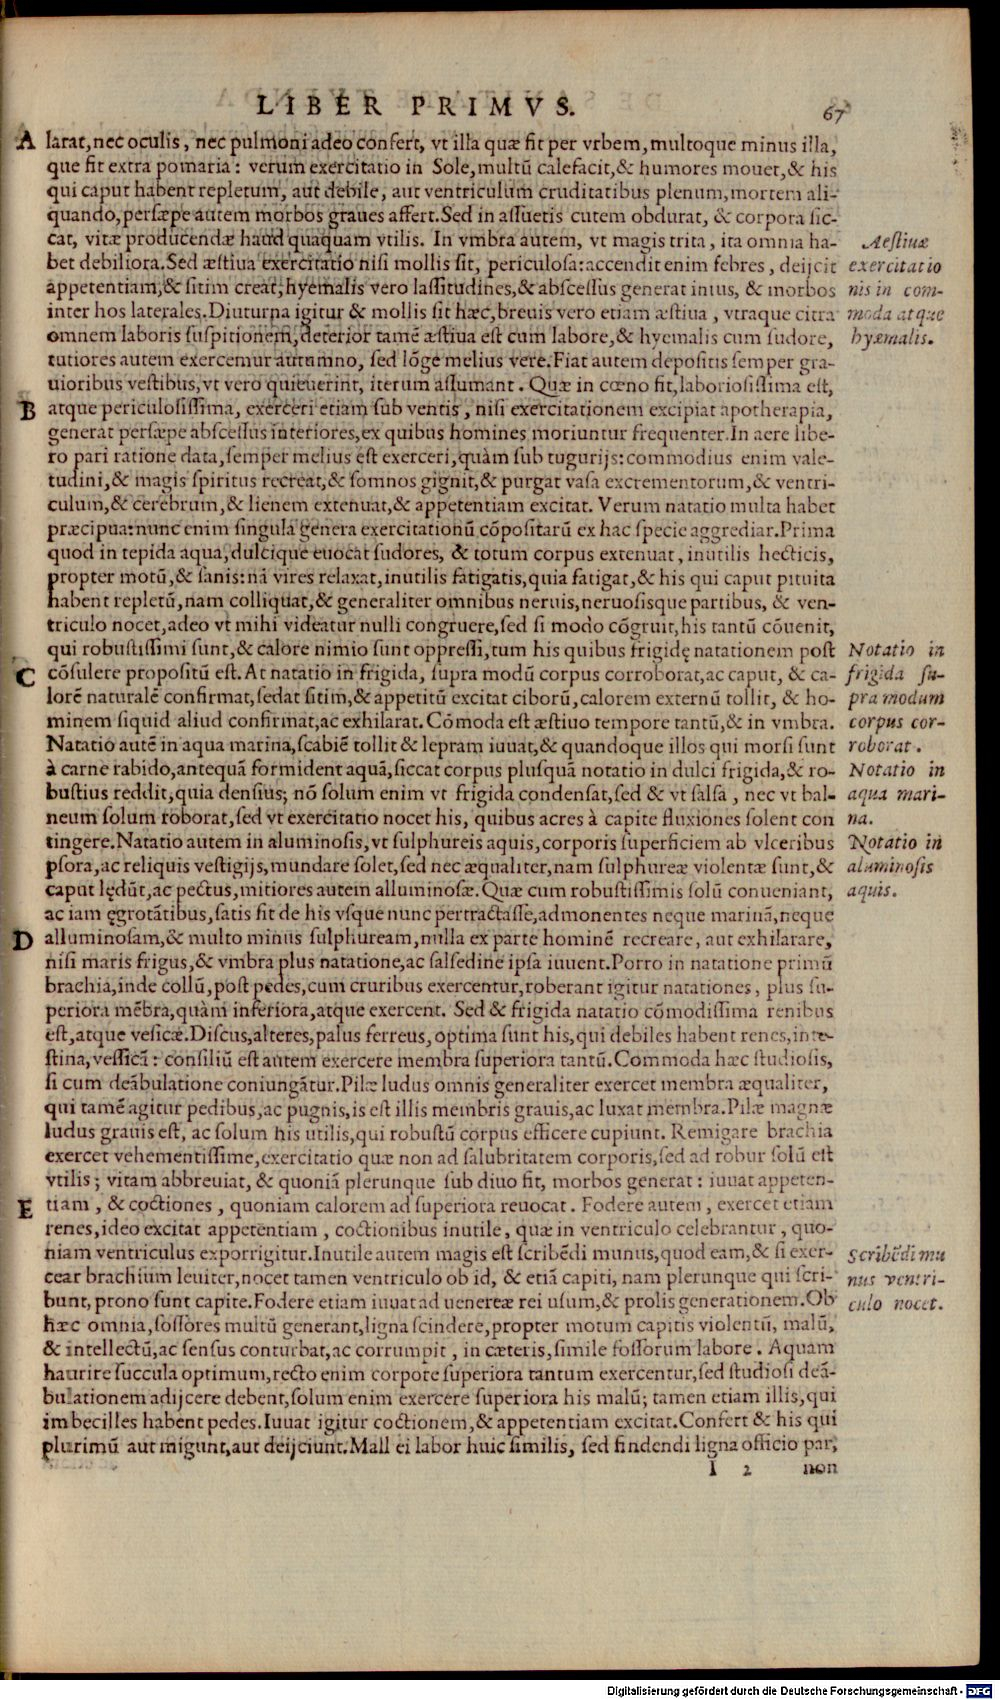 LIBER PRIMVS. 67
A larat, nec oculis, nec pulmoni adeo confert, vt illa quæ fit per vrbem, multoque minus illa,
que fit extra pomaria: verum exercitatio in Sole, multũ calefacit, & humores mouet, & his
qui caput habent repletum, aut debile, aut ventriculum cruditatibus plenum, mortem ali-
quando, persæpe autem morbos graues affert. Sed in assuetis cutem obdurat, & corpora sic-
cat, vitæ producendæ haud quaquam vtilis. In vmbra autem, vt magis trita, ita omnia ha-
bet debiliora. Sed æstiua exercitatio nisi mollis sit, periculosa: accendit enim febres, deijcit
appetentiam, & sitim creat, hyemalis vero lassitudines, & abscessus generat intus, & morbos
inter hos laterales. Diuturna igitur & mollis sit hæc, breuis vero etiam æstiua, vtraque citra
omnem laboris suspitionem, deterior tamẽ æstiua est cum labore, & hyemalis cum sudore,
tutiores autem exercemur autumno, sed lõge melius vere. Fiat autem depositis semper gra-
uioribus vestibus, vt vero quieuerint, iterum assumant. Quæ in cœno fit, laboriosissima est,
B atque periculosissima, exerceri etiam sub ventis, nisi exercitationem excipiat apotherapia,
generat persæpe abscessus interiores, ex quibus homines moriuntur frequenter. In aere libe-
ro pari ratione data, semper melius est exerceri, quàm sub tugurijs: commodius enim vale-
tudini, & magis spiritus recreat, & somnos gignit, & purgat vasa excrementorum, & ventri-
culum, & cerebrum, & lienem extenuat, & appetentiam excitat. Verum natatio multa habet
præcipua: nunc enim singula genera exercitationũ cõpositarũ ex hac specie aggrediar. Prima
quod in tepida aqua, dulcique euocat sudores, & totum corpus extenuat, inutilis hecticis,
propter motũ, & sanis: nã vires relaxat, inutilis fatigatis, quia fatigat, & his qui caput pituita
habent repletũ, nam colliquat, & generaliter omnibus neruis, neruosisque partibus, & ven-
triculo nocet, adeo vt mihi videatur nulli congruere, sed si modo cõgruit, his tantũ cõuenit,
qui robustissimi sunt, & calore nimio sunt oppressi, tum his quibus frigidę natationem post
C cõsulere propositũ est. At natatio in frigida, supra modũ corpus corroborat, ac caput, & ca-
lorẽ naturalẽ confirmat, sedat sitim, & appetitũ excitat ciborũ, calorem externũ tollit, & ho-
minem siquid aliud confirmat, ac exhilarat. Cõmoda est æstiuo tempore tantũ, & in vmbra.
Natatio autẽ in aqua marina, scabiẽ tollit & lepram iuuat, & quandoque illos qui morsi sunt
à carne rabido, antequã formident aquã, siccat corpus plusquã notatio in dulci frigida, & ro-
bustius reddit, quia densius; nõ solum enim vt frigida condensat, sed & vt salsa, nec vt bal-
neum solum roborat, sed vt exercitatio nocet his, quibus acres à capite fluxiones solent con
tingere. Natatio autem in aluminosis, vt sulphureis aquis, corporis superficiem ab vlceribus
psora, ac reliquis vestigijs, mundare solet, sed nec æqualiter, nam sulphureæ violentæ sunt, &
caput lędũt, ac pectus, mitiores autem alluminosæ. Quæ cum robustissimis solũ conueniant,
ac iam ęgrotãtibus, satis fit de his vsque nunc pertractasse, admonentes neque marinã, neque
D alluminosam, & multo minus sulphuream, nulla ex parte hominẽ recreare, aut exhilarare,
nisi maris frigus, & vmbra plus natatione, ac salsedine ipsa iuuent. Porro in natatione primũ
brachia, inde collũ, post pedes, cum cruribus exercentur, roberant igitur natationes, plus su-
periora mẽbra, quàm inferiora, atque exercent. Sed & frigida natatio cõmodissima renibus
est, atque vesicæ. Discus, alteres, palus ferreus, optima sunt his, qui debiles habent renes, inte-
stina, vessicã: consiliũ est autem exercere membra superiora tantũ. Commoda hæc studiosis,
si cum deãbulatione coniungãtur. Pilæ ludus omnis generaliter exercet membra æqualiter,
qui tamẽ agitur pedibus, ac pugnis, is est illis membris grauis, ac luxat membra. Pilæ magnæ
ludus grauis est, ac solum his utilis, qui robustũ corpus efficere cupiunt. Remigare brachia
exercet vehementissime, exercitatio quæ non ad salubritatem corporis, sed ad robur solũ est
vtilis; vitam abbreuiat, & quoniã plerunque sub diuo fit, morbos generat: iuuat appeten-
E tiam, & coctiones, quoniam calorem ad superiora reuocat. Fodere autem, exercet etiam
renes, ideo excitat appetentiam, coctionibus inutile, quæ in ventriculo celebrantur, quo-
niam ventriculus exporrigitur. Inutile autem magis est scribẽdi munus, quod eam, & si exer-
cear brachium leuiter, nocet tamen ventriculo ob id, & etiã capiti, nam plerunque qui scri-
bunt, prono sunt capite. Fodere etiam iuuat ad uenereæ rei usum, & prolis generationem. Ob
hæc omnia, fossores multũ generant, ligna scindere, propter motum capitis violentũ, malũ,
& intellectũ, ac sensus conturbat, ac corrumpit, in cæteris, simile fossorum labore. Aquam
haurire succula optimum, recto enim corpore superiora tantum exercentur, sed studiosi deã-
bulationem adijcere debent, solum enim exercere superiora his malũ; tamen etiam illis, qui
imbecilles habent pedes. Iuuat igitur coctionem, & appetentiam excitat. Confert & his qui
plurimũ aut migunt, aut deijciunt. Mall ei labor huic similis, sed findendi ligna officio par,
I 2 non
Aestiuæ
exercitatio
nis in com-
moda atque
hyæmalis.
Notatio in
frigida su-
pra modum
corpus cor-
roborat.
Notatio in
aqua mari-
na.
Notatio in
aluminosis
aquis.
Scribẽdi mu
nus ventri-
culo nocet.
Digitalisierung gefördert durch die Deutsche Forschungsgemeinschaft - DFG